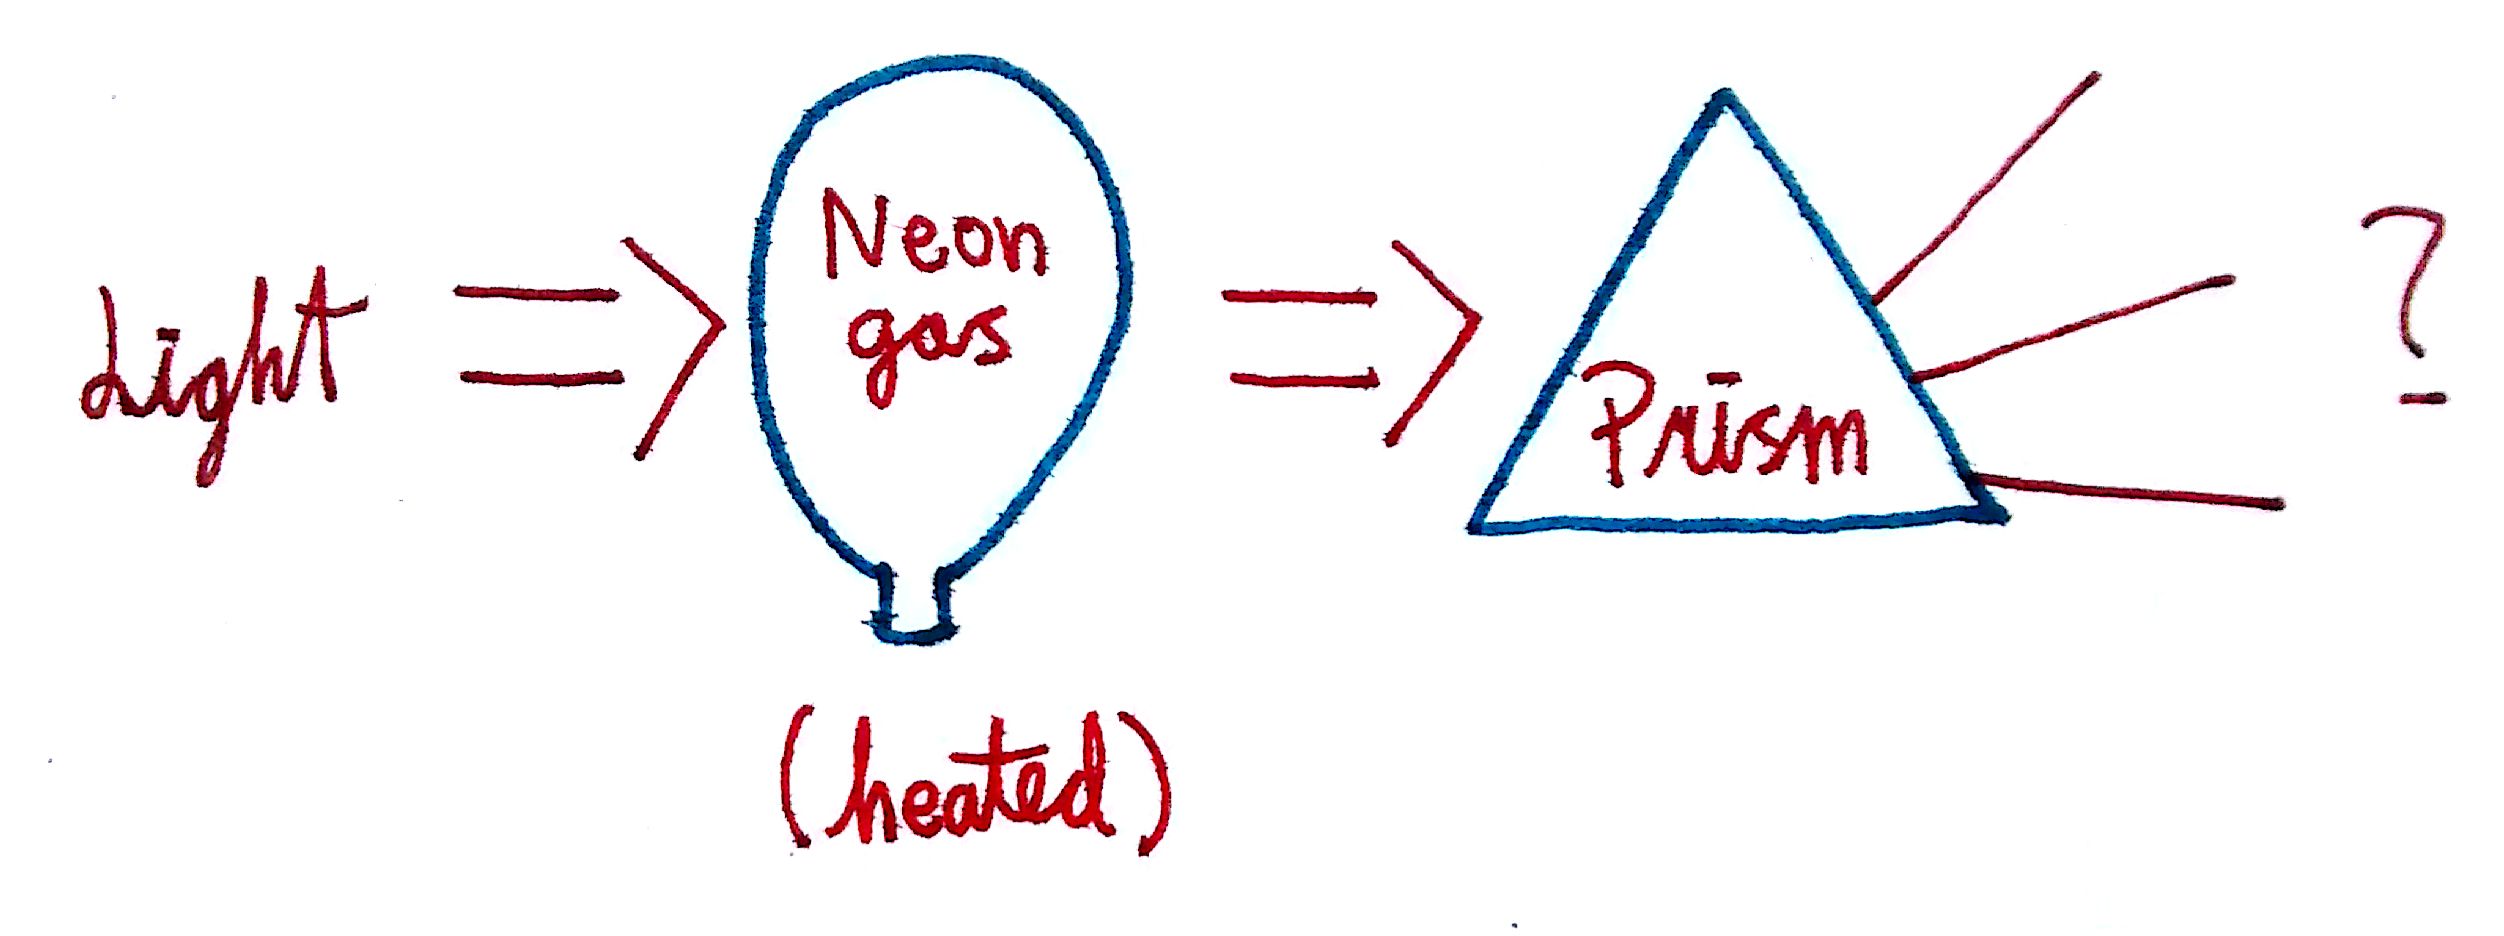 Light
Neon
gas
(heated)
Prism
?